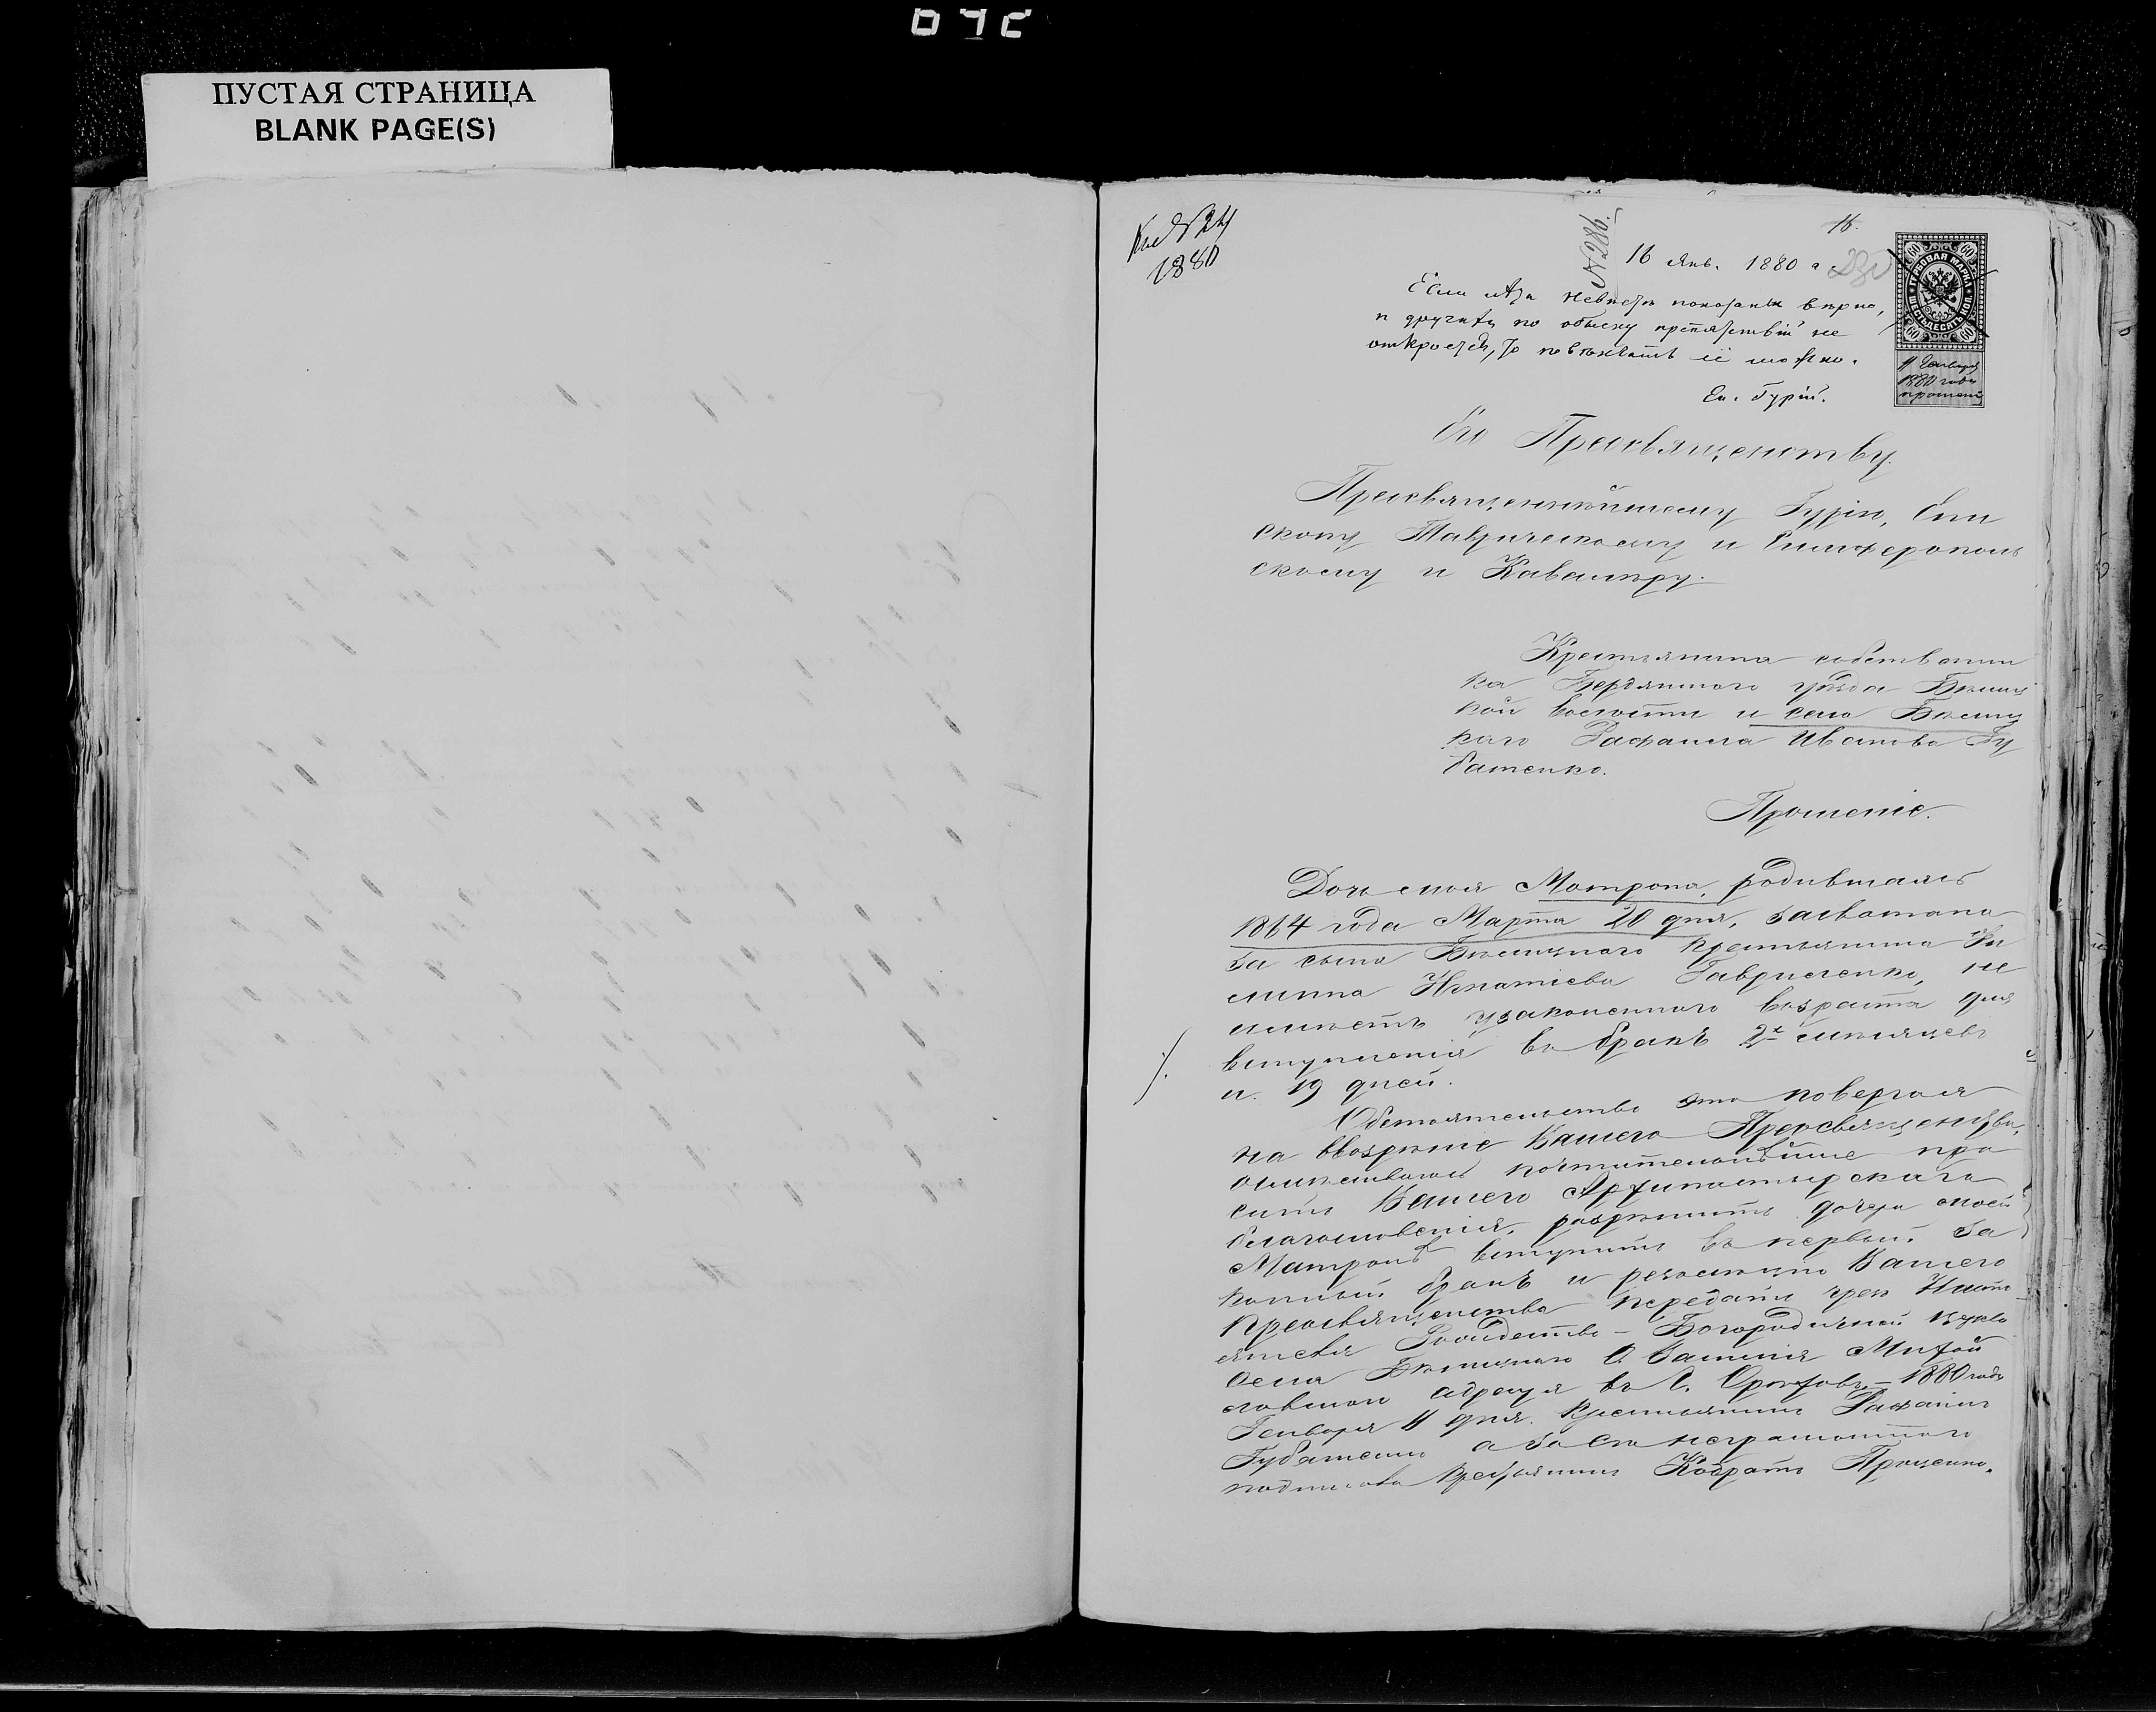 ПУСТАЯ СТРАНИЦА
BLANK PAGE(S)
1880
№ 286.
16.
16 Янв. 1880 г.
Если лѣта невѣсты показаны вѣрно,
и других по обыску препятствій не
откроется, то повѣнчать ее можно.
Еп. Гурій.
60 60
ГЕРБОВАЯ МАРКА
ШЕСТЬДЕСЯТЪ КОП.
60 60
11 Генваря
1880 года
Его Преосвященству
Преосвященнѣйшему Гурію, Епи
скопу Таврическому и Симферополь
скому и Кавалеру.
Крестьянина собственни
ка Бердянского уѣзда Бѣлиц
кой волости и села Бѣлиц
каго Рафаила Иванова Гу
батенко.
Прошеніе.
Дочь моя Матрона, родившаяся
1864 года Марта 20 дня, засватана
за сына Бѣлицкого крестьянина
Игнатіева Гавриленко, не
имѣетъ узаконенного возраста для
вступленія въ бракъ 2х мѣсяцевъ
и 19 дней.
Обстоятельство это повергая
на воззрѣніе Вашего Преосвященства,
осмѣливаюсь почтительнѣйше про
сить Вашего Архипастырскаго
благословенія, разрѣшить дочери моей
Матронѣ вступить въ первый за
конный бракъ и резолюцію Вашего
Преосвященства передать чрез Насто
ятеля Рождество-Богородичной церкви
села Бѣлицкаго О. Василія Михай
ловскаго адресуя въ С. Орѣховъ - 1880 года
Генваря 11 дня. Крестьянинъ Рафаилъ
Губатенко а за его неграмотного
Крестьянинъ Кодратъ Проценко.